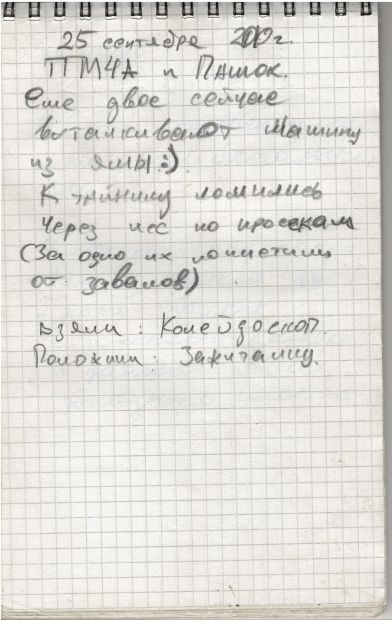 25 сентября 2010г.
ПМЧА и Пашок.
Еще двое сейчас
выталкивают машину
из ямы :).
К тайнику ломились
через лес по просекам
(За одно их почистили
от завалов)
взяли : Колейдоскоп.
Положили : Зажигалку.